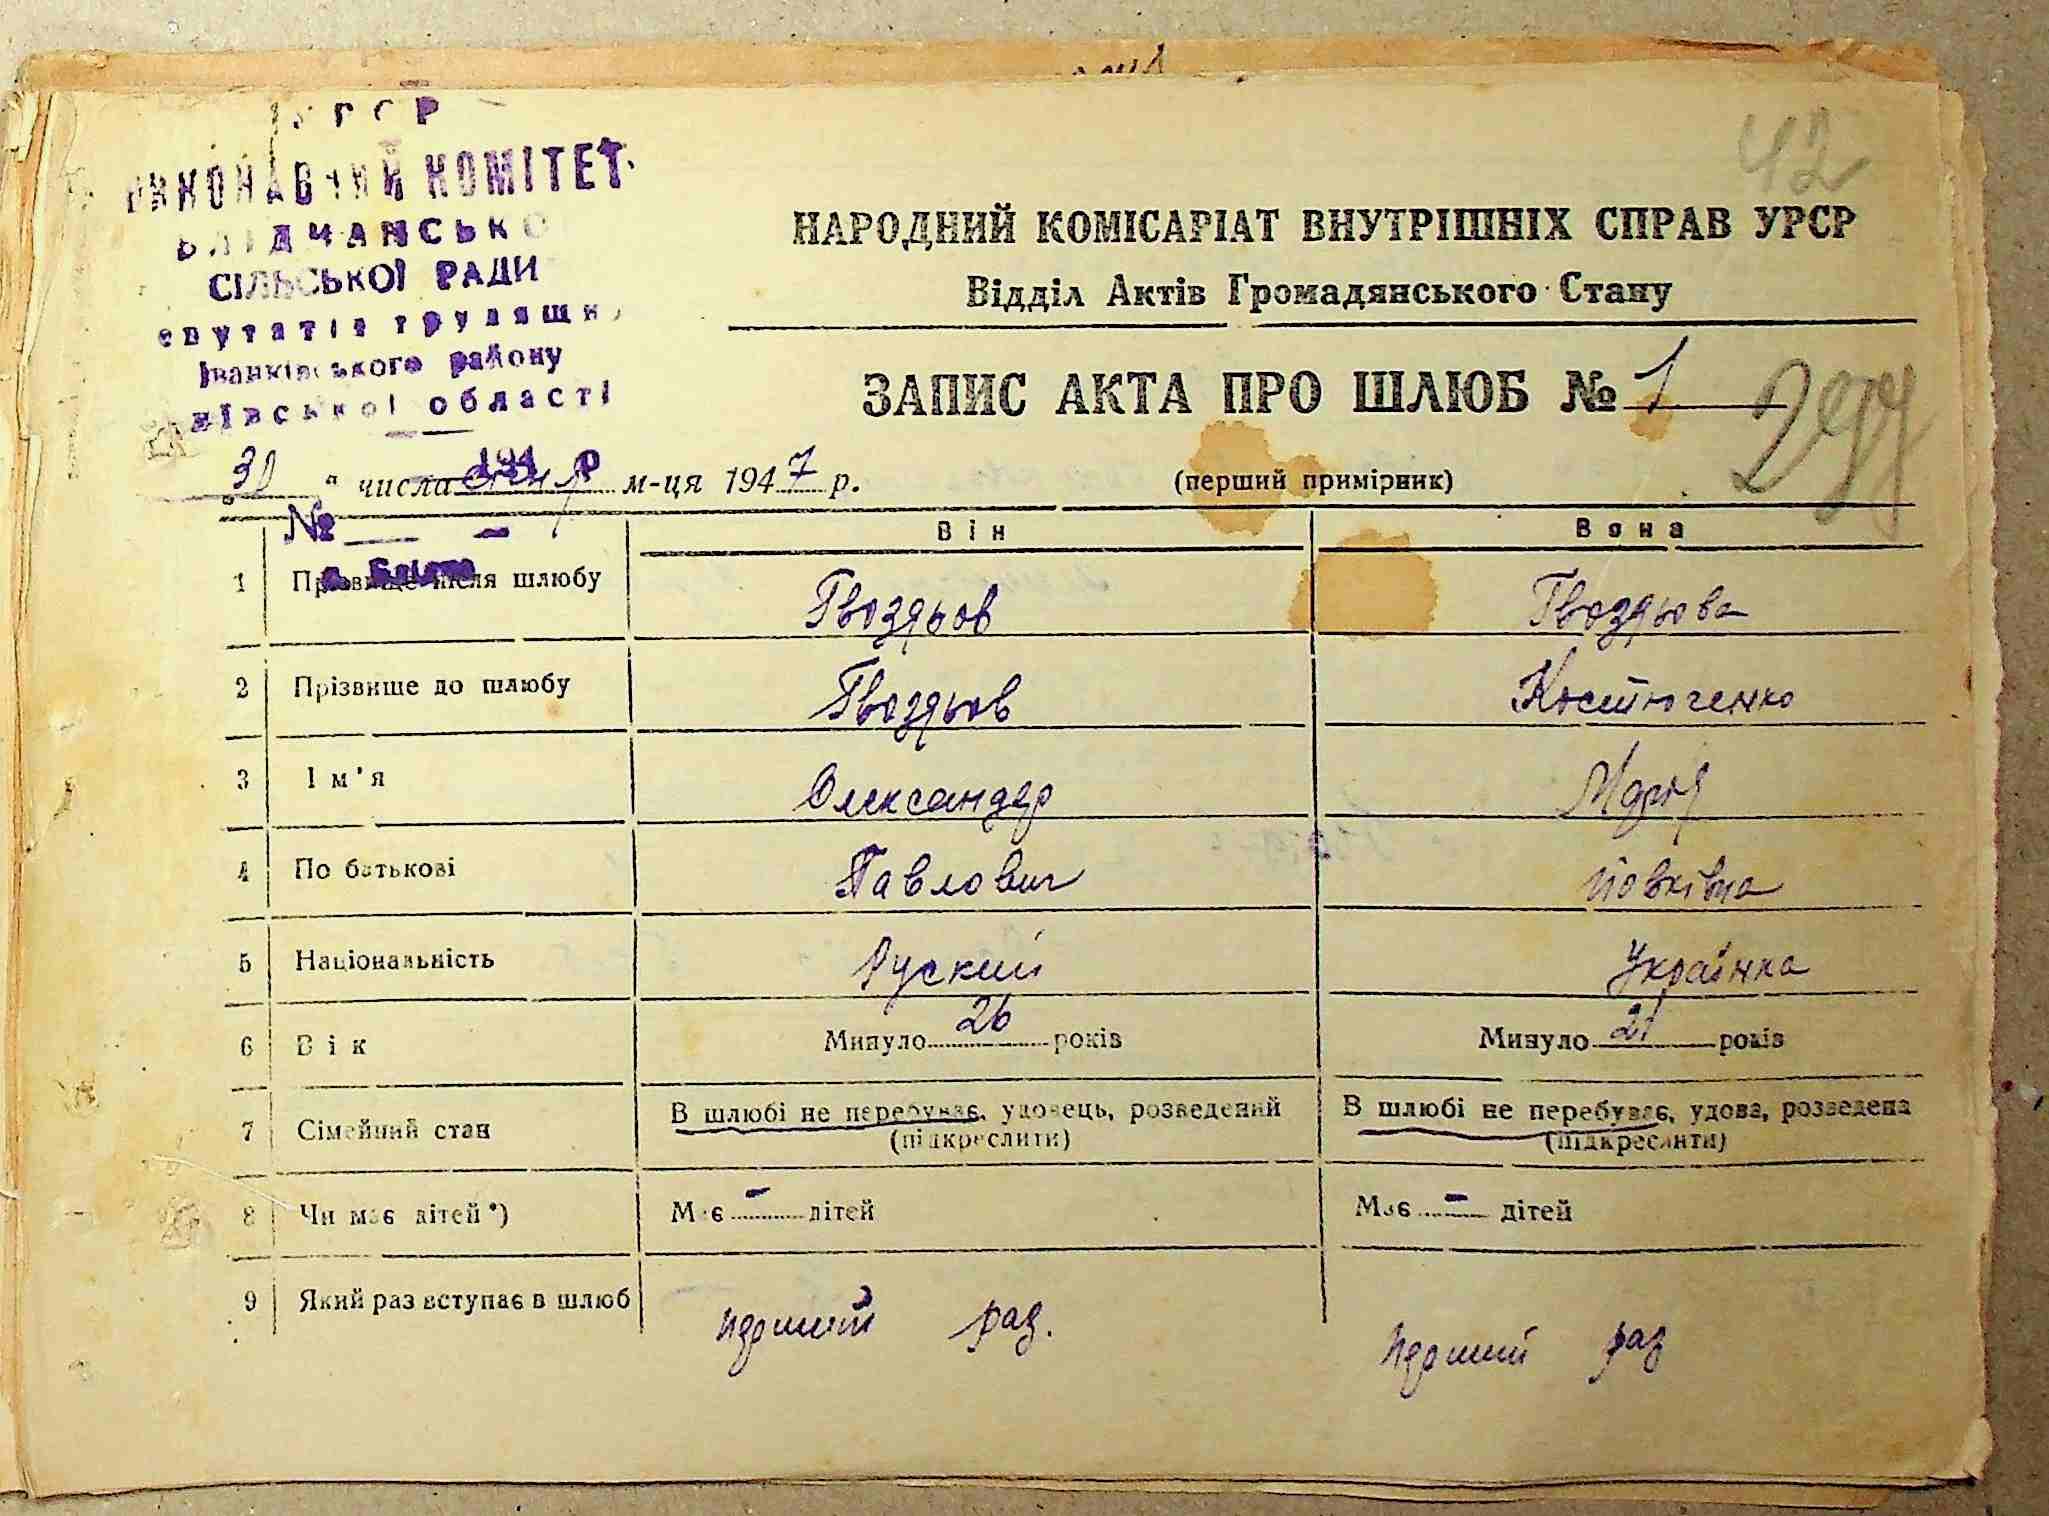 УРСР
ВИКОНАВЧИЙ КОМІТЕТ
БЛІДЧАНСЬКО
СІЛЬСЬКОЇ РАДИ
епутатів трудящи
Іванківського району
иївської області
194 р
№ —
с. Блідча
42
НАРОДНИЙ КОМІСАРІАТ ВНУТРІШНІХ СПРАВ УРСР
Відділ Актів Громадянського Стану
ЗАПИС АКТА ПРО ШЛЮБ № 1
30 " числа м-ця 1947 р. (перший примірник)
Він Вона
1 Прізвище після шлюбу Гвоздьов Гвоздьова
2 Прізвище до шлюбу Гвоздьов Костюченко
3 Ім'я Олександр Марія
4 По батькові Павлович
5 Національність Руский Українка
6 Вік Минуло 26 років Минуло 21 років
7 Сімейний стан В шлюбі не перебуває, удовець, розведений В шлюбі не перебуває, удова, розведена
(підкреслити) (підкреслити)
8 Чи має дітей*) Має – дітей Має – дітей
9 Який раз вступає в шлюб перший раз. перший раз